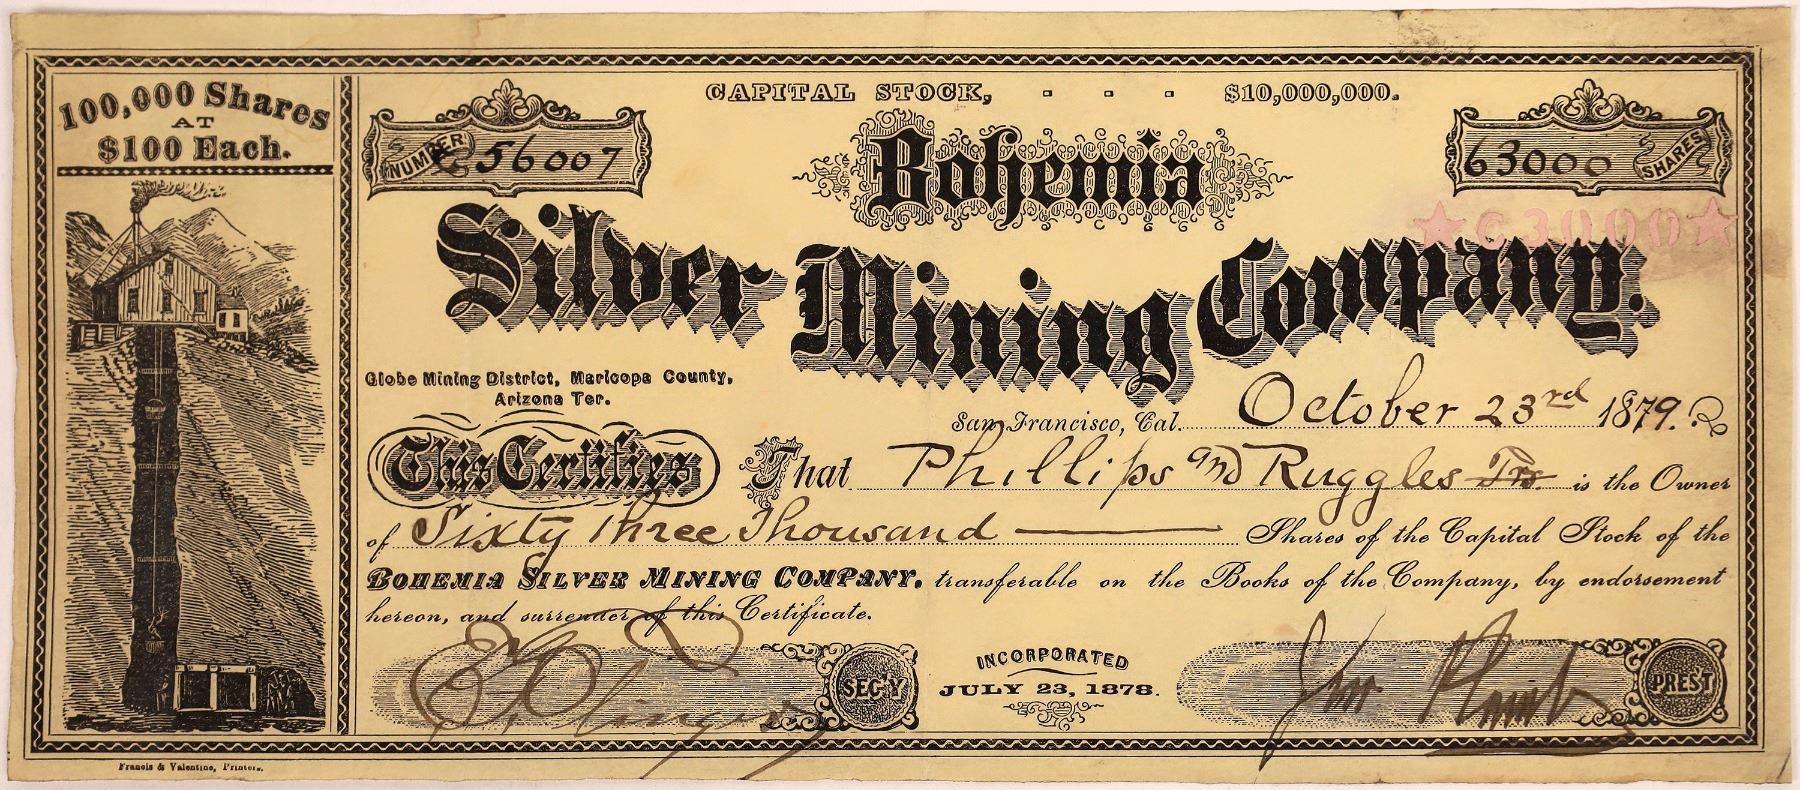 100,000 Shares
AT
$100 Each.
CAPITAL STOCK, - - - $10,000,000.
NUMBER 56007
63000 SHARES
Bohemia
Silver Mining Company.
Globe Mining District, Maricopa County,
Arizona Ter.
San Francisco, Cal. October 23rd 1879.
This Certifies That Phillips and Ruggles Trs. is the Owner
of Sixty three Thousand Shares of the Capital Stock of the
BOHEMIA SILVER MINING COMPANY. transferable on the Books of the Company, by endorsement
hereon, and surrender of this Certificate.
SEC'Y
INCORPORATED
JULY 23, 1878.
PREST
Francis & Valentine, Printers.